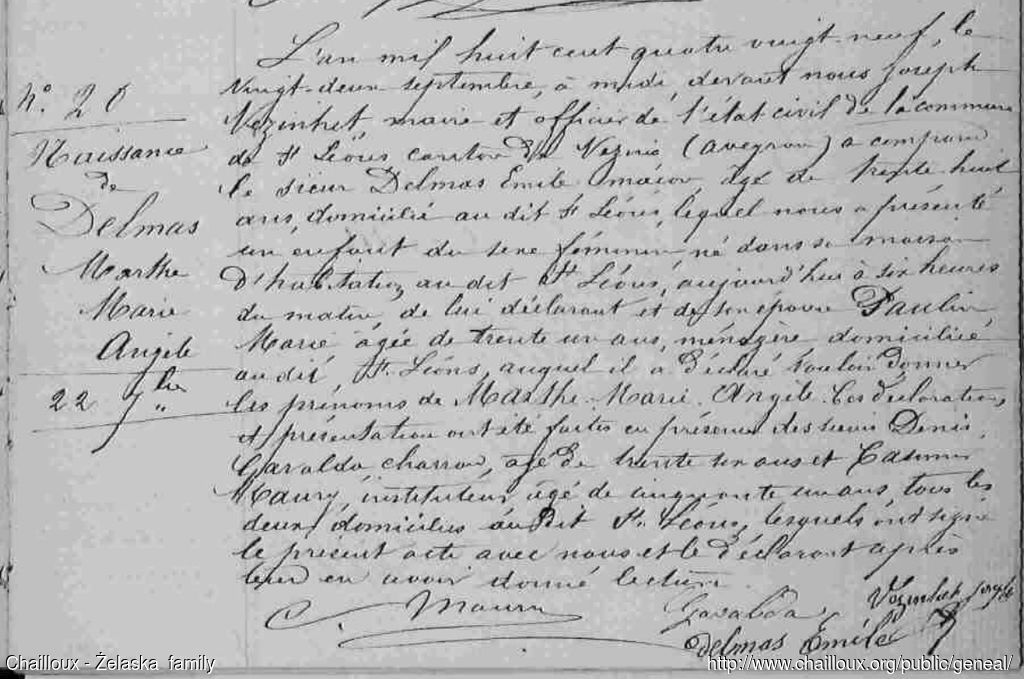 N° 20
Naissance
de
Delmas
Marthe
Marie
Angèle
22 7bre
L'an mil huit cent quatre vingt-neuf, le
Vingt-deux septembre, à midi, devant nous Joseph
Vezinhet, maire et officier de l'état civil de la commune
de St Léons canton de Vezins (Aveyron) a comparu
le sieur Delmas Emile maçon, âgé de trente huit
ans, domicilié au dit St Léons, lequel nous a présenté
un enfant du sexe féminin, né dans sa maison
d'habitation au dit St Léons, aujourd'hui à six heures
du matin de lui déclarant et de son épouse Paulin
Marie âgée de trente un ans, ménagère domiciliée
au dit, St Léons, auquel il a déclaré vouloir donner
les prénoms de Marthe Marie Angèle. Ces déclaration
et présentation ont été faites en présence des sieurs Denis
Gavalda charron, âgé de trente ans et Casimir
Maury, instituteur âgé de cinquante un ans, tous les
deux domiciliés au dit St Léons, lesquels ont signé
le présent acte avec nous et le déclarant après
leur en avoir donné lecture.
C. Maury
Gavalda
Vezinhet Joseph
Delmas Emile
Chailloux - Żelaska family
http://www.chailloux.org/public/geneal/